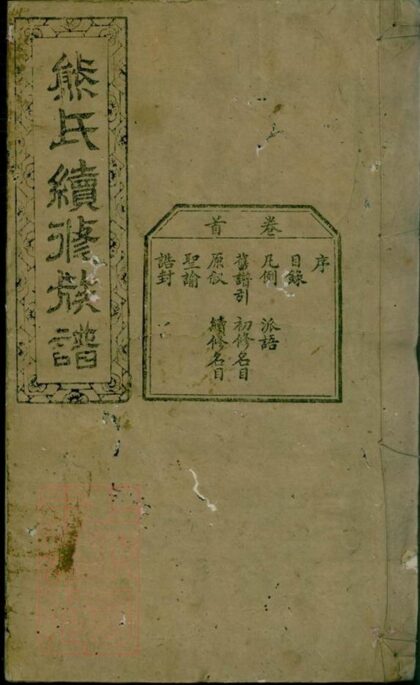 熊氏續修族譜
卷首
序
目錄
凡例 派語
舊譜引 初修名目
原叙 續修名目
聖諭
誥封